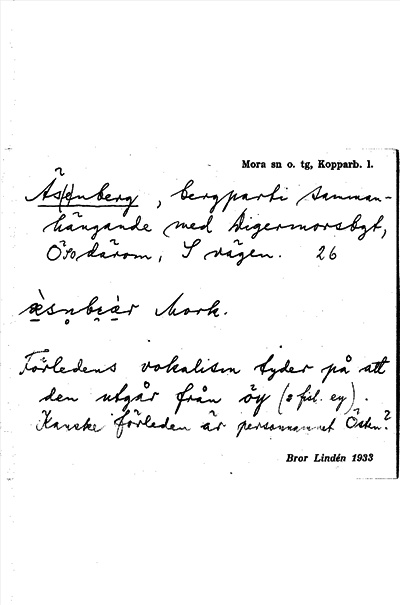 Mora sn o. tg, Kopparb. l.
Ås(e)nberg, bergparti samman-
hängande med Digermorsbgt,
ÖSO därom, S vägen. 26
æ̀snbær Mork.
Förledens vokalism tyder på att
den utgår från öy (isl. ey).
Kanske förleden är personnamnet Östen?
Bror Lindén 1933